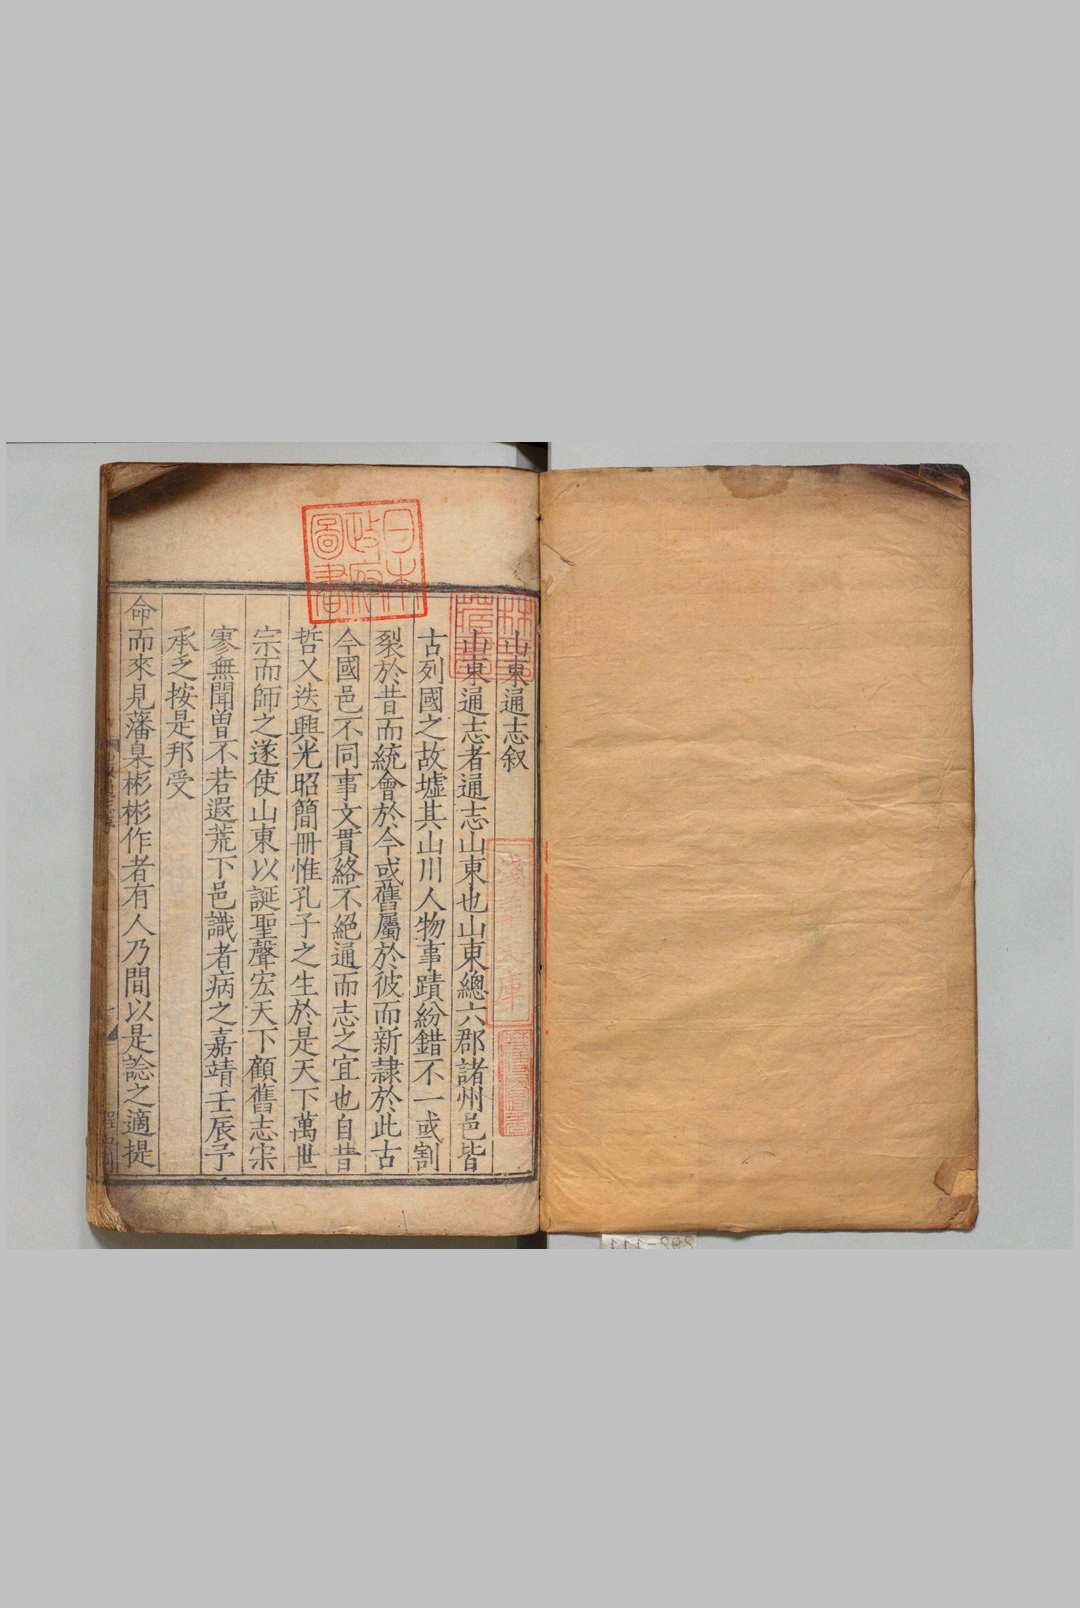 山東通志叙
山東通志者通志山東也山東總六郡諸州邑皆
古列國之故墟其山川人物事蹟紛錯不一或割
裂於昔而統會於今或舊屬於彼而新隷於此古
今國邑不同事文貫絡不絕通而志之宜也自昔
哲乂迭興光昭簡冊惟孔子之生於是天下萬世
宗而師之遂使山東以誕聖聲宏天下顧舊志宋
寥無聞曽不若遐荒下邑識者病之嘉靖壬辰予
承乏按是邦受
命而來見藩臬彬彬作者有人乃間以是諗之適提
日本
政府
圖書
淺草文庫